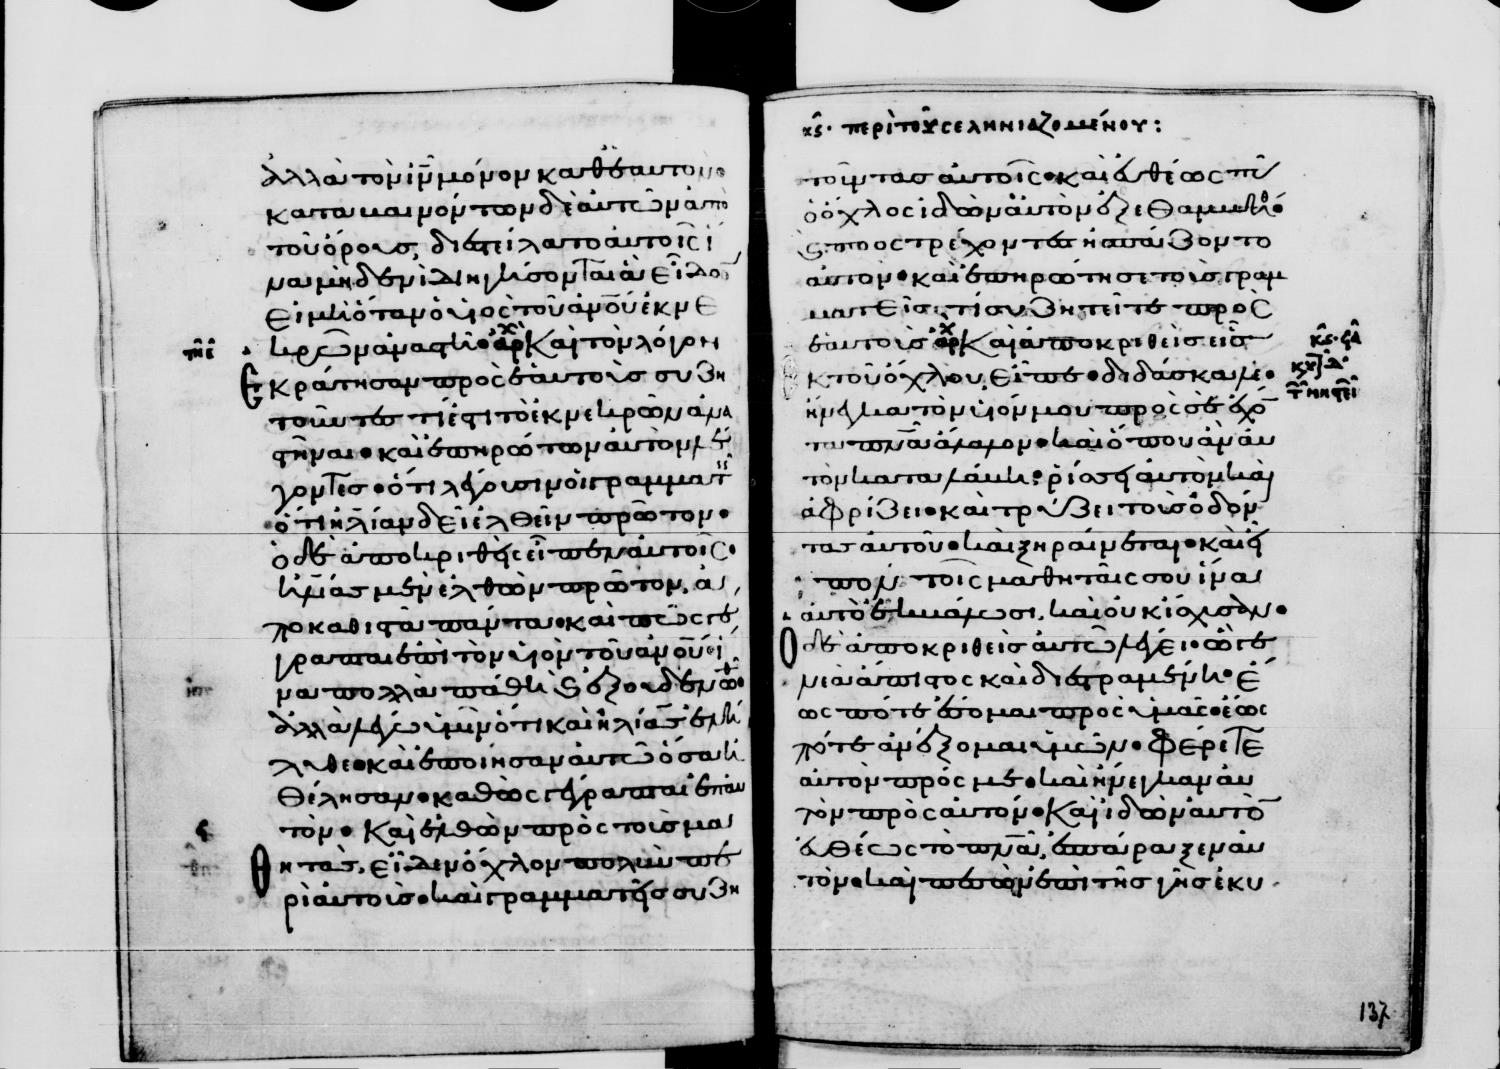 ἀλλὰ τὸν ἰν̅ μόνον μεθ' ἑαυτῶν·
καταβαινόντων δὲ αὐτῶν ἀπὸ
τοῦ ὄρους, διεστείλατο αὐτοῖς ἵ
να μηδενὶ διηγήσονται ἃ εἶδον
εἰ μὴ ὅταν ὁ υἱὸς τοῦ ἀνου ἐκ νε
κρῶν ἀναστῇ· ἀρχ Καὶ τὸν λόγον
ἐκράτησαν πρὸς ἑαυτοὺς συζη
τοῦντες τί ἐστι τὸ ἐκ νεκρῶν ἀνα
στῆναι· καὶ ἐπηρώτων αὐτὸν λέ
γοντες· ὅτι λέγουσιν οἱ γραμματ
ὅτι ἠλίαν δεῖ ἐλθεῖν πρῶτον·
ὁ δὲ ἀποκριθεὶς εἶπεν αὐτοῖς·
ἠλίας μὲν ἐλθὼν πρῶτον, ἀ
ποκαθιστᾷ πάντα· καὶ πῶς γέ
γραπται ἐπὶ τὸν υἱὸν τοῦ ἀνου ἵ
να πολλὰ πάθῃ καὶ ἐξουδενωθ·
ἀλλὰ λέγω ὑμῖν ὅτι καὶ ἠλίας ἐλή
λυθε· καὶ ἐποίησαν αὐτῷ ὅσα ἠ
θέλησαν· καθὼς γέγραπται ἐπ' αυ
τόν· Καὶ ἐλθὼν πρὸς τοὺς μα
θητάς, εἶδεν ὄχλον πολὺν πε
ρὶ αὐτούς· καὶ γραμματεῖς συζη
κϛ· περὶ τοῦ σεληνιαζομένου:
τοῦντας αὐτοῖς· καὶ εὐθέως π
ὁ ὄχλος ἰδὼν αὐτὸν ἐξεθαμβήθ·
καὶ προστρέχοντες ἠσπάζοντο
αὐτόν· καὶ ἐπηρώτησε τοὺς γραμ
ματεῖς, τί συζητεῖτε πρὸς
ἑαυτούς ἀρχ Καὶ ἀποκριθεὶς εἷς
ἐκ τοῦ ὄχλου, εἶπε· διδάσκαλε·
ἤνεγκα τὸν υἱόν μου πρὸς σὲ ἔχο
τα πνα ἄλαλον· καὶ ὅπου ἂν αὐ
τὸν καταλάβῃ· ῥήσσει αὐτὸν καὶ
ἀφρίζει· καὶ τρύζει τοὺς ὀδόν
τας αὐτοῦ· καὶ ξηραίνεται· καὶ εἶ
πον τοῖς μαθηταῖς σου ἵνα
αὐτὸ ἐκβάλωσι, καὶ οὐκ ἴσχυσαν·
Ὁ δὲ ἀποκριθεὶς αὐτῷ λέγει· ὦ γε
νεὰ ἄπιστος καὶ διεστραμένη· ἕ
ως πότε ἔσομαι πρὸς ὑμᾶς· ἕως
πότε ἀνέξομαι ὑμῶν· φέρετε
αὐτὸν πρός με· καὶ ἤνεγκαν αὐ
τὸν πρὸς αὐτόν· Καὶ ἰδὼν αὐτὸ
εὐθέως τὸ πνα, ἐσπάραξεν αὐ
τόν· καὶ πεσὼν ἐπὶ τῆς γῆς ἐκυ
137